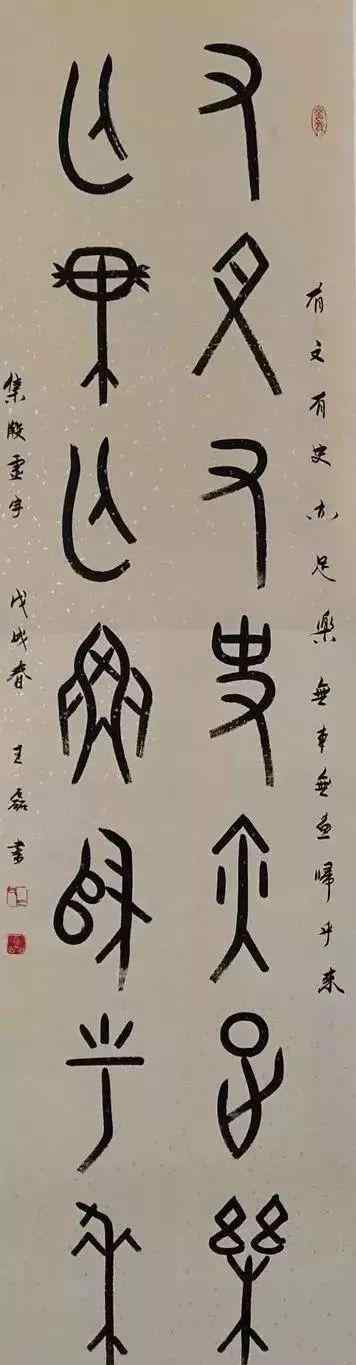 有文有史亦足樂 無車無魚歸乎來
有文有史亦足樂
無車無魚歸乎來
集殷虛字 戊戌春 王磊書